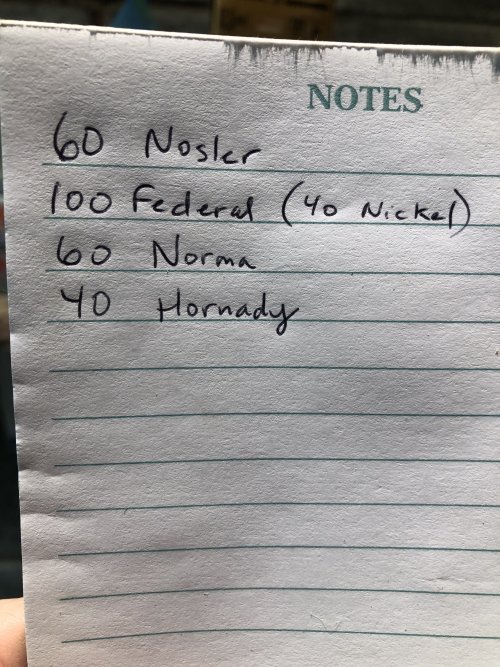 NOTES
60 Nosler
100 Federal (40 Nickel)
60 Norma
40 Hornady